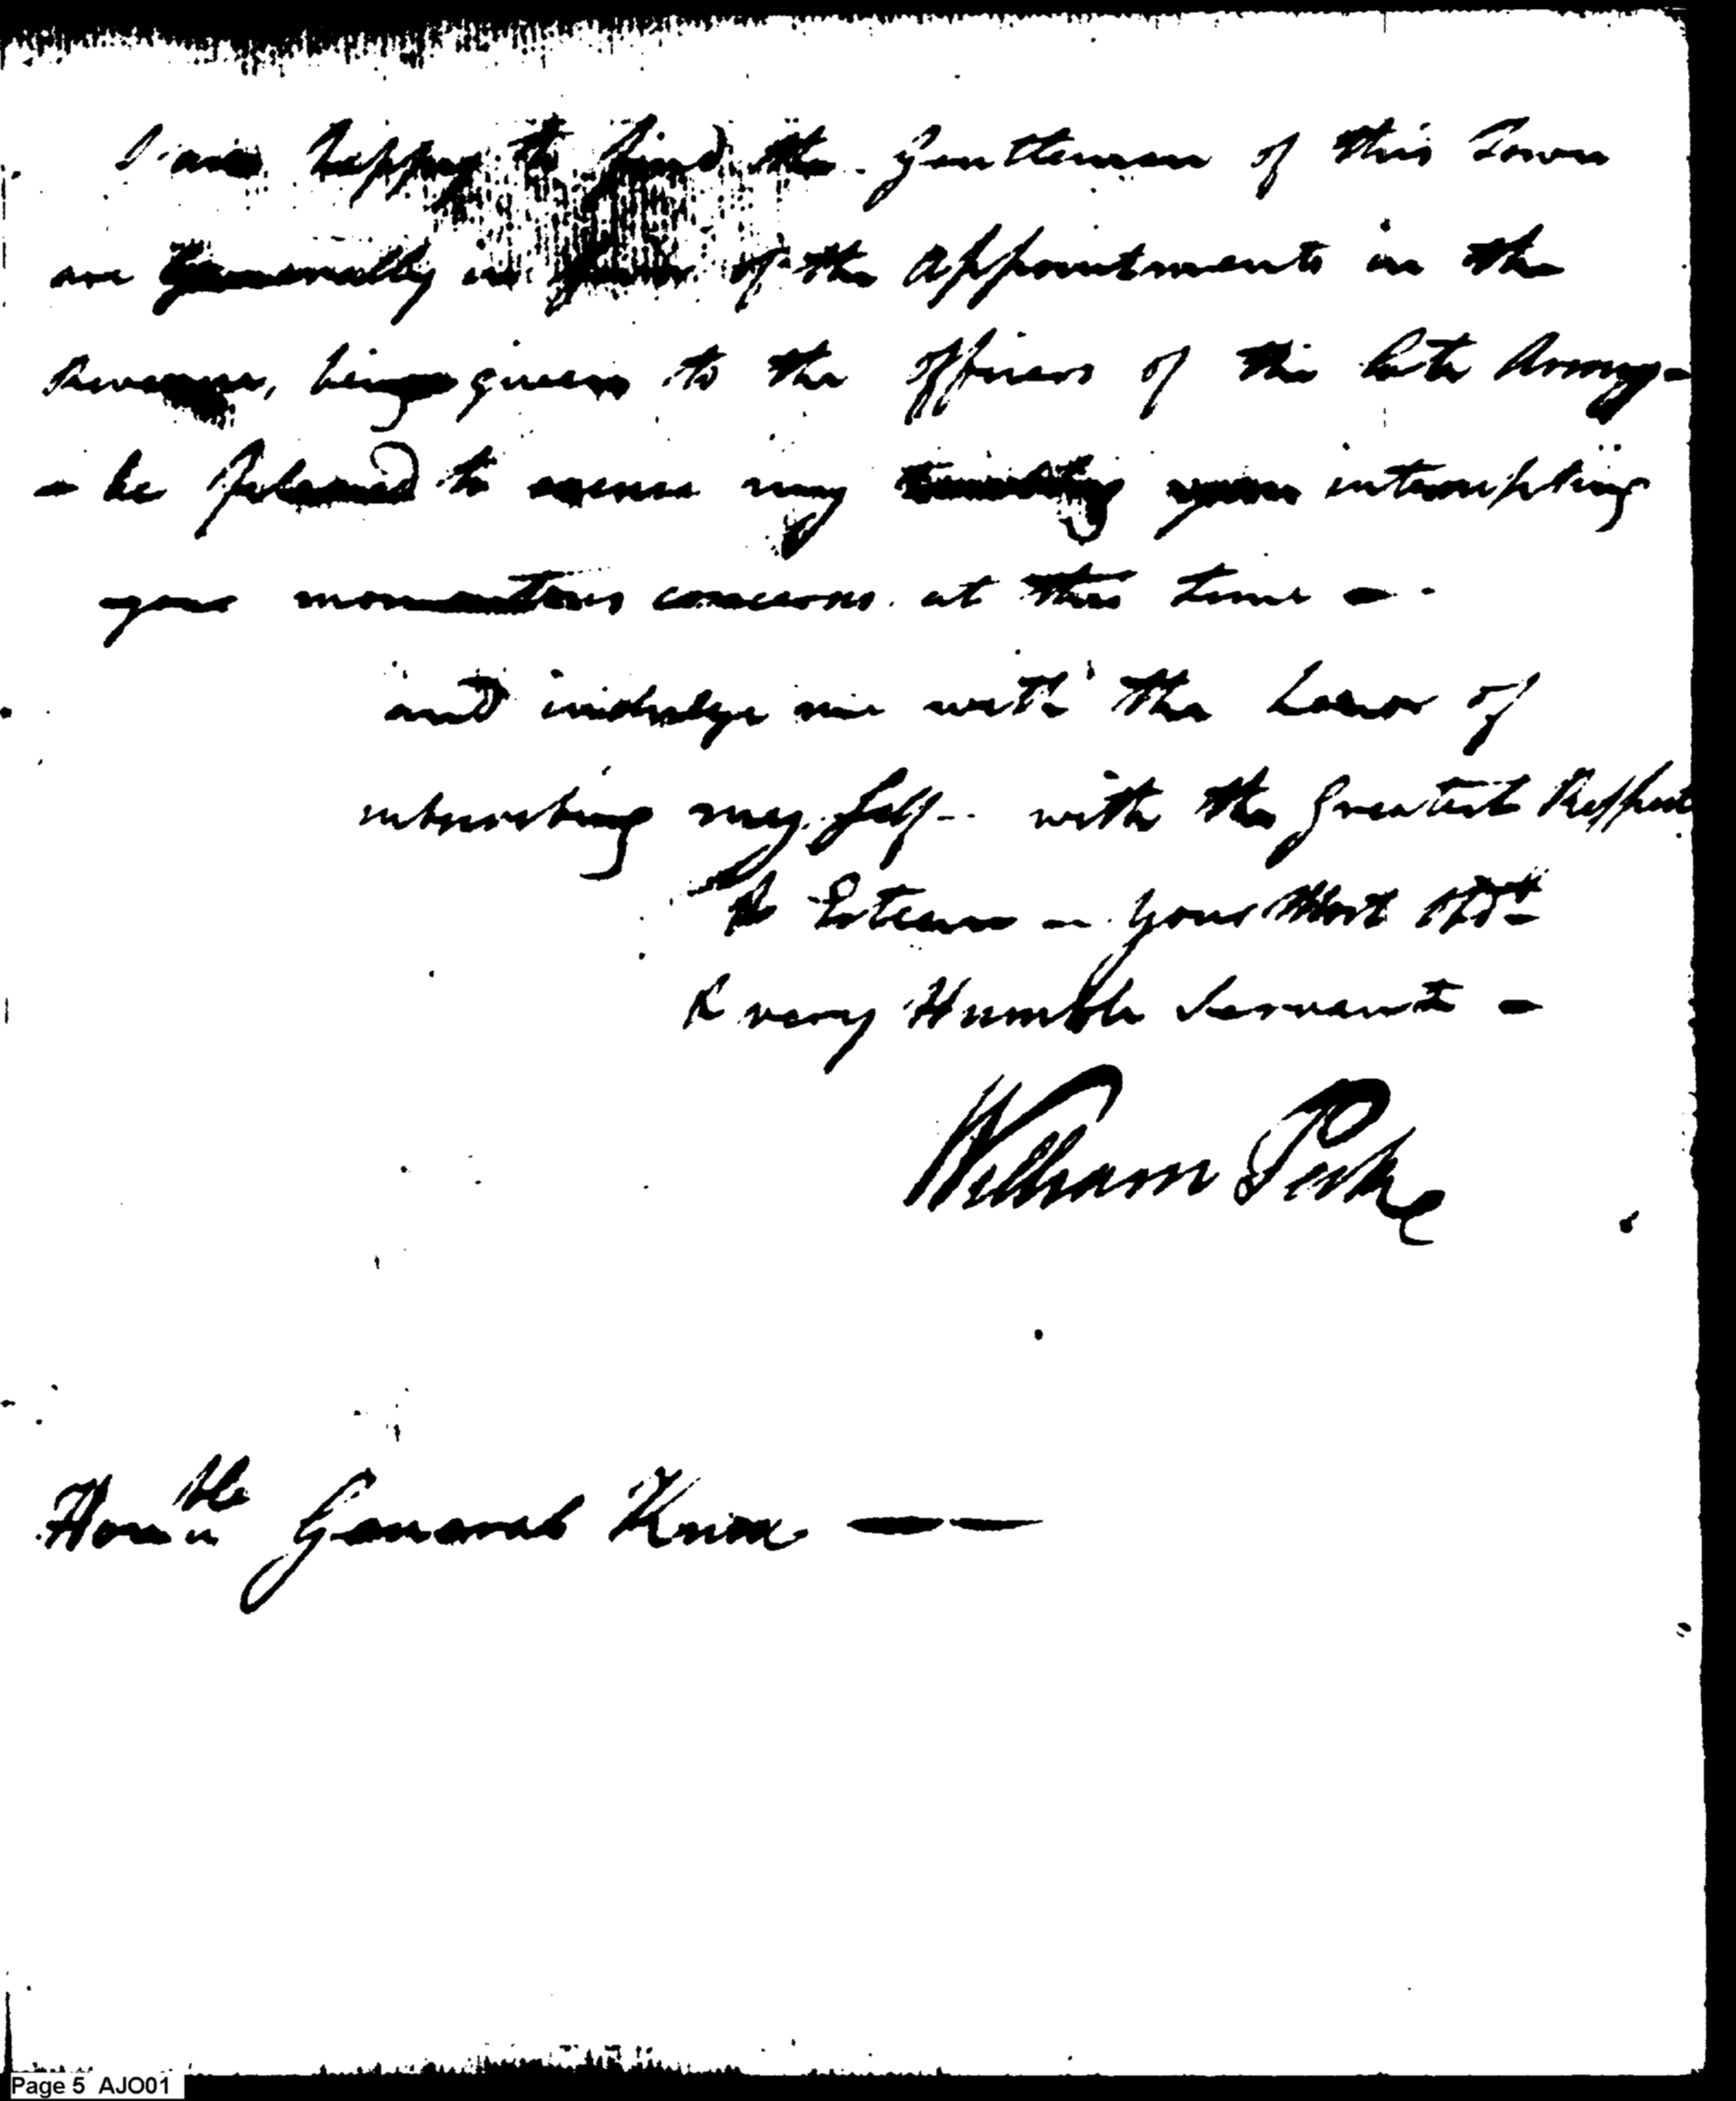 I am happy to find the Gentlemen of this Town
are Generally in favour of the appointments in the
Revenue, being given to the officers of the late Army –
– be pleased to excuse my
your momentous concerns at this time –
and indulge me with the honor of
my self – with the Greatest Respect
& Esteem – your Most Obt
& very Humble Servant –
William Perkins
Honble General Knox —
Page 5 AJO01